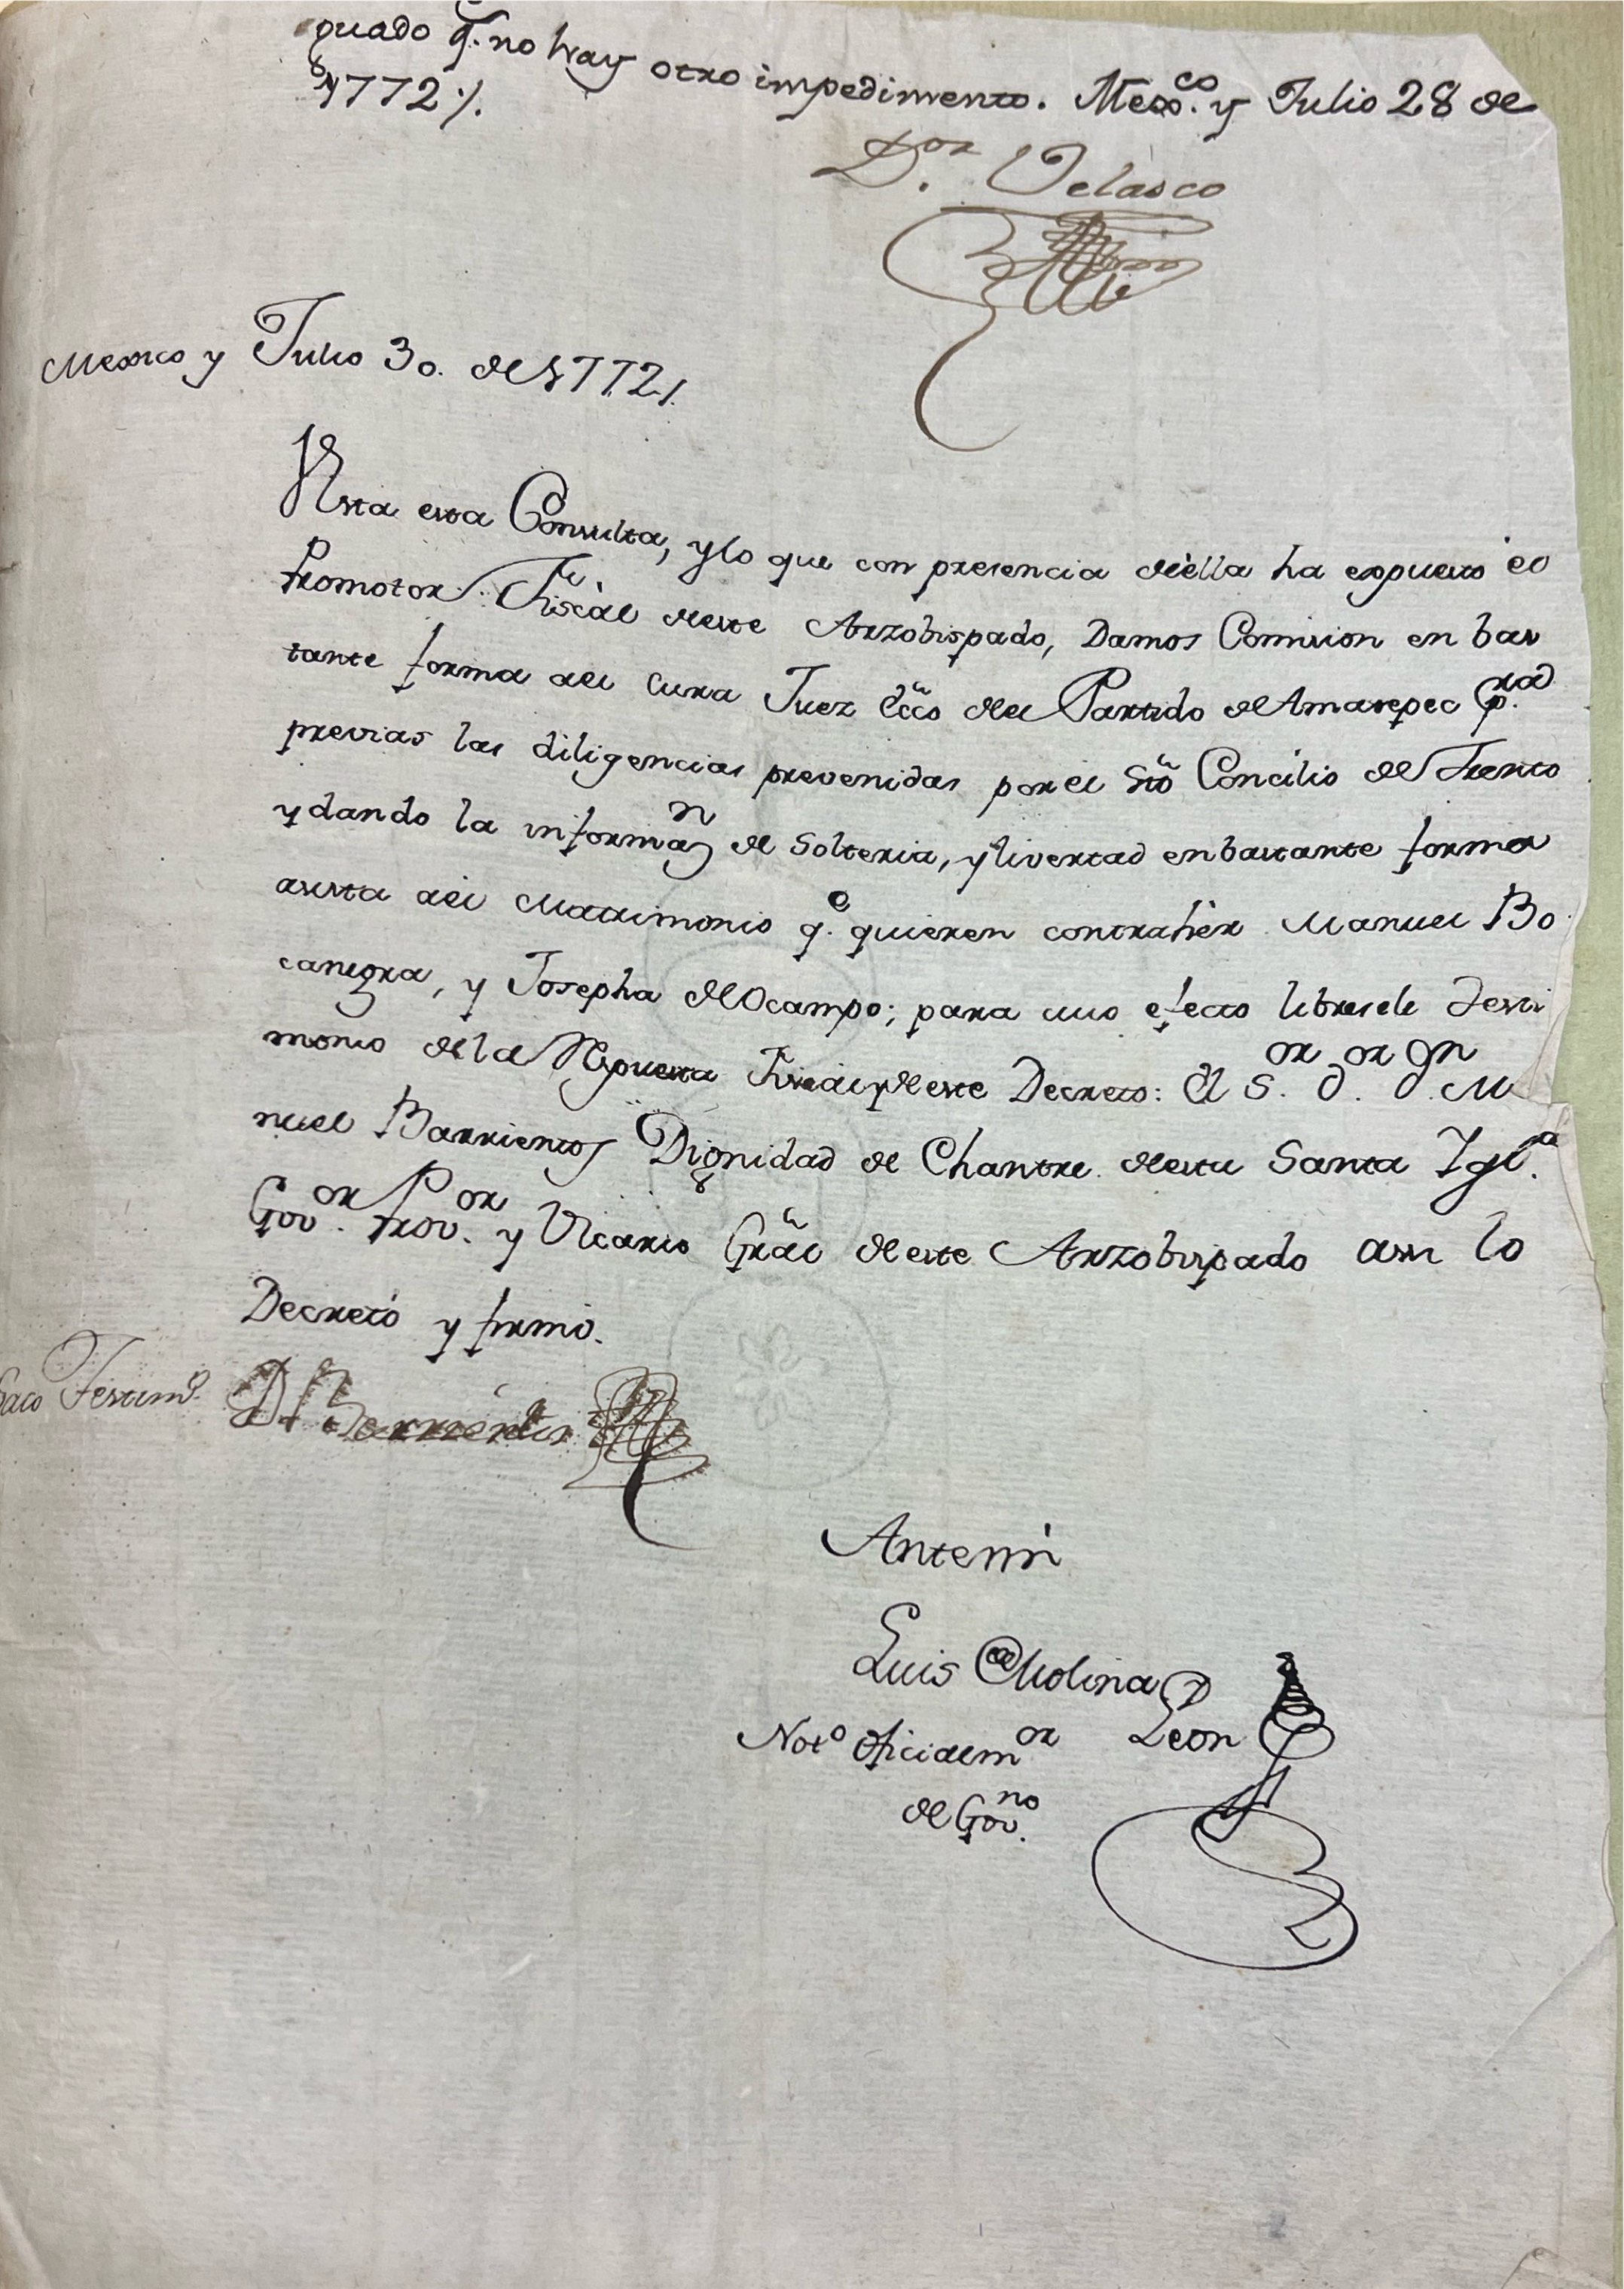 guado q.^e no hay otro impedimento. Mex.^co y Julio 28 de
1772 ./.
D.^or Velasco
Mexico y Julio 30. de 1772./.
Vista esta Consulta, y lo que con presencia deèlla ha expuesto el
Promotor Fiscàl deeste Arzobispado, Damos Comision en bas
tante forma àel Cura Juez Ecc̃o del Partido de Amatepec p.^a q.^e
previas las diligencias prevenidas por el Stõ Concilio de Trento
y dando la informaz.^n de Solteria, y livertad en bastante forma
asista àèl Matrimonio q.^e quieren contrahèr Manuel Bo
canegra, y Josepha de Ocampo; para cuio efecto libresele Testi
monio de la Respuesta Fiscàl, y de este Decreto: El S.^or D.^or D.^n Ma
nuel Barrientos Dignidad de Chantre deesta Santa Igl.^a
Gov.^or Prov.^or y Vicario Grãl de este Arzobispado assi lo
Decretò y firmò.
Saco Testim.^o D.^r Barrientos
Antemi
Luis de Molina
Not.^o Oficial m.^or Leon
de Gov.^no